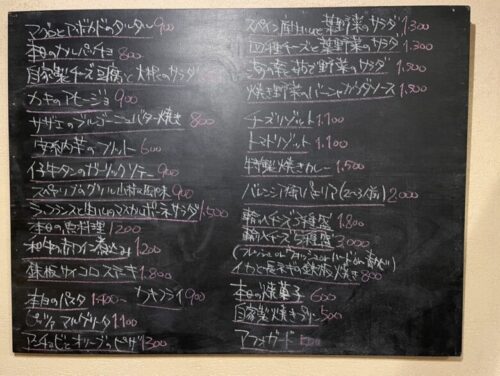 マグロとアボカドのタルタル 900
本日のカルパッチョ 800
自家製チーズ豆腐と大根のサラダ
カキのアヒージョ 900
サザエのブルゴーニュバター焼き 800
安納芋のフリット 600
牛タンのガーリックソテー 900
スペアリブのグリル 900
ラ・フランスと生ハムのマスカルポーネサラダ 1,500
本日の魚料理 1200
和牛の赤ワイン煮込み 1200
鉄板サイコロステーキ 1,800
本日のパスタ 1,400〜 カキフライ 900
ピッツァ マルゲリータ 1,100
アンチョビとオリーブのピザ 1300
スペイン産生ハムと葉野菜のサラダ 1,300
四種チーズと葉野菜のサラダ 1,300
野菜のサラダ 1,500
焼き野菜のバーニャカウダソース 1,500
チーズリゾット 1,100
トマトリゾット 1,100
特製焼きカレー 1,500
バレンシア風パエリア(2〜3人前) 2,000
輸入チーズ3種盛 1,800
輸入チーズ5種盛 3,000
イカと長ネギの鉄板焼き 800
本日の焼菓子 600
自家製焼きプリン 500
アフォガード